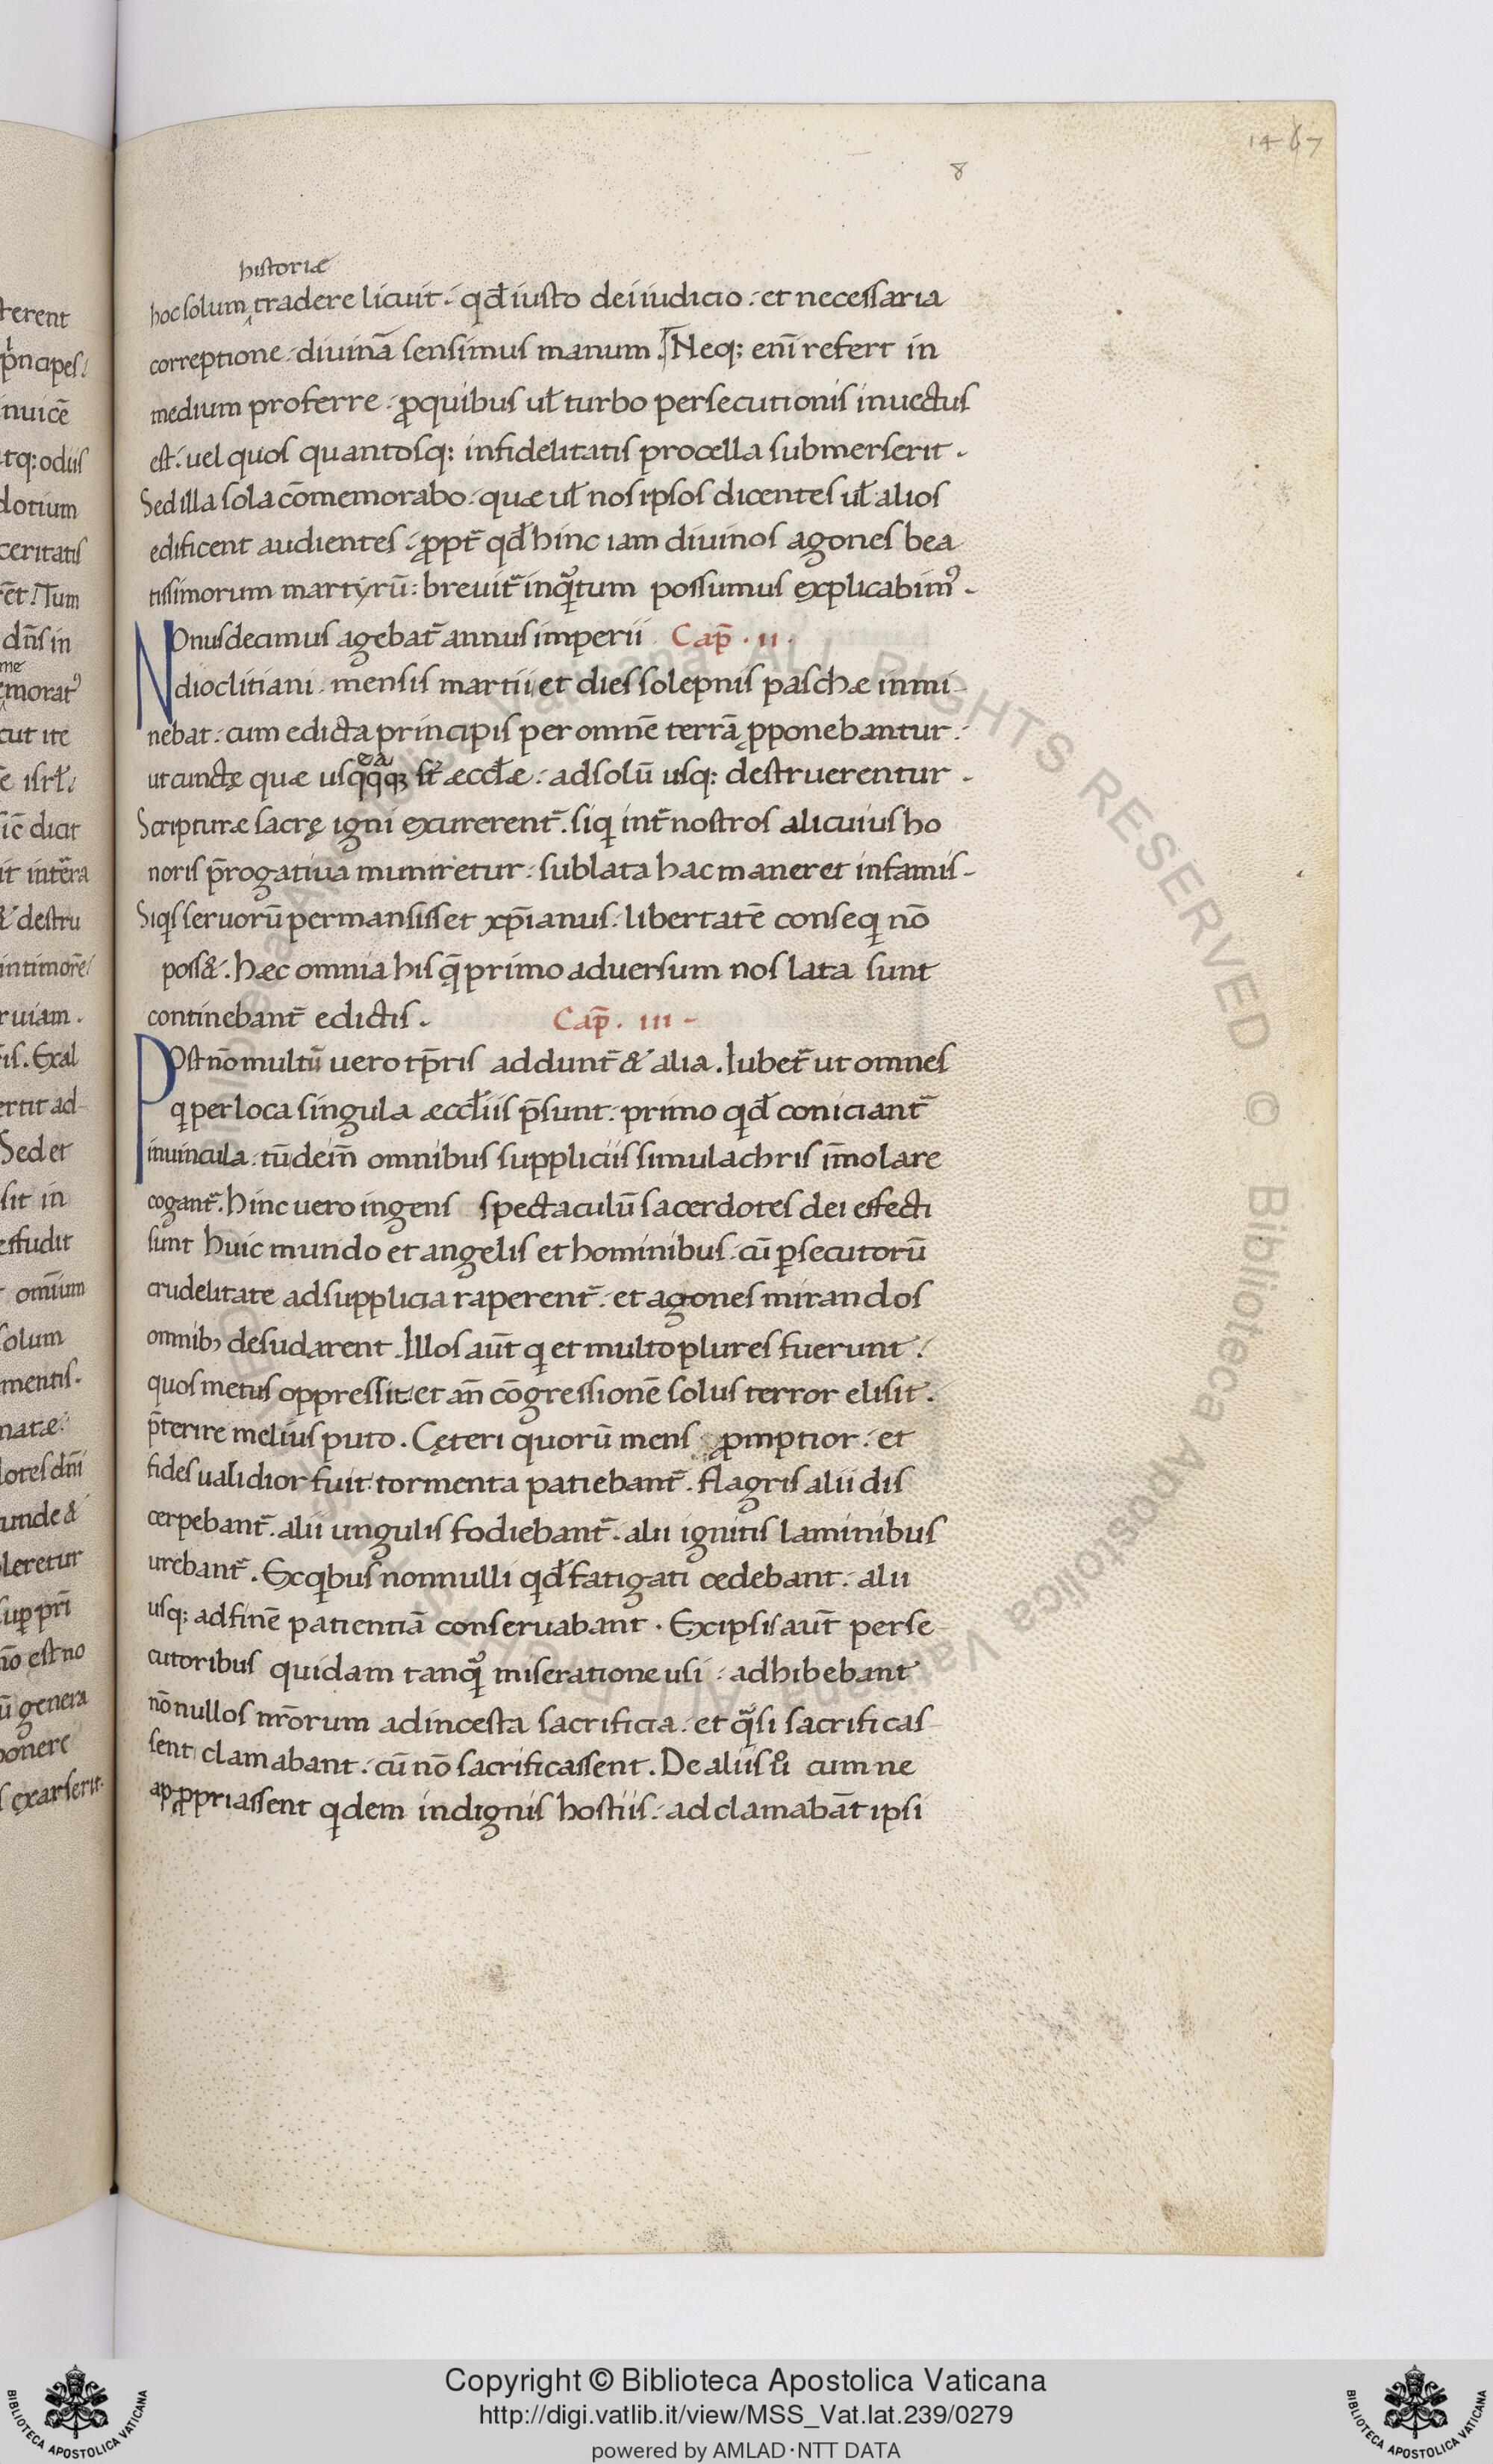 14 67
8
historiæ
hoc solum tradere licuit. qđ iusto dei iudicio. et necessaria
correptione. diuinā sensimus manum. Neq; enī refert in
medium proferre. ꝓ quibus uł turbo persecutionis inuectus
est. uel quos quantosq; infidelitatis procella submerserit.
Sed illa sola cōmemorabo. quæ uł nos ipsos dicentes uł alios
edificent audientes. ꝓpt̄ qđ hinc iam diuinos agones bea
tissimorum martyrū. breuit̄ inqͣtum possumus explicabimꝰ.
Nonusdecimus agebat̄ annus imperii Cap̄. ii.
dioclitiani. mensis martii et dies solepnis paschæ inmi-
nebat. cum edicta principis per omnē terrā ꝓponebantur.
ea
ut cunctę quæ usq qq st̄ æccłæ. ad solū usq; destruerentur.
Scripturæ sacrę igni excurerent̄. siq int̄ nostros alicuius ho
noris p̄rogatiua muniretur. sublata hac maneret infamis.
Siqs seruorū permansisset xp̄ianus. libertatē conseq nō
poss&. hæc omnia his q̄ primo aduersum nos lata sunt
continebant̄ edictis. Cap̄. iii.
Post nō multū uero tp̄ris addunt̄ & alia. Iubet̄ ut omnes
q per loca singula æccłiis p̄sunt. primo qđ coniciant̄
in uincula. tū dein̄ omnibus suppliciis simulachris im̄olare
cogant̄. hinc uero ingens spectaculū sacerdotes dei effecti
sunt huic mundo et angelis et hominibus. cū ꝑsecutorū
crudelitate ad supplicia raperent̄. et agones mirandos
omnibꝰ desudarent. Illos aut̄ q et multo plures fuerunt.
quos metus oppressit. et an̄ cōgressionē solus terror elisit.
p̄terire melius puto. Cęteri quorū mens ꝓmptior. et
fides ualidior fuit. tormenta patiebant̄. flagris alii dis
cerpebant̄. alii ungulis fodiebant̄. alii ignitis laminibus
urebant̄. Ex qbus nonnulli qđ fatigati cedebant. alii
usq; ad finē patientiā conseruabant. Ex ipsis aut̄ perse
cutoribus quidam tanqͣ miseratione usi. adhibebant
nōnullos nr̄orum ad incesta sacrificia. et qͣsi sacrificas-
sent clamabant. cū nō sacrificassent. De aliis ů cum ne
ap ꝓpriassent qdem indignis hostiis. adclamabāt ipsi
terent
pͥncipes.
inuicē
tq; odiis
dotium
ceritatis
Tum
dn̄s in
me
moratꝰ
cut itē
isrł.
sic̄ dicit
it int̄era
& destru
in timorē
ruiam.
ris. Exal
ertit ad-
Sed et
sit in
effudit
omīum
solum
mentis.
natæ.
dotes dn̄i
unde &
leretur
sup pr̄i
nō est no
ū genera
ponere
s exarserit.
© Biblioteca Apostolica Vaticana ALL RIGHTS RESERVED
BIBLIOTECA APOSTOLICA VATICANA
Copyright © Biblioteca Apostolica Vaticana
http://digi.vatlib.it/view/MSS_Vat.lat.239/0279
powered by AMLAD·NTT DATA
BIBLIOTECA APOSTOLICA VATICANA